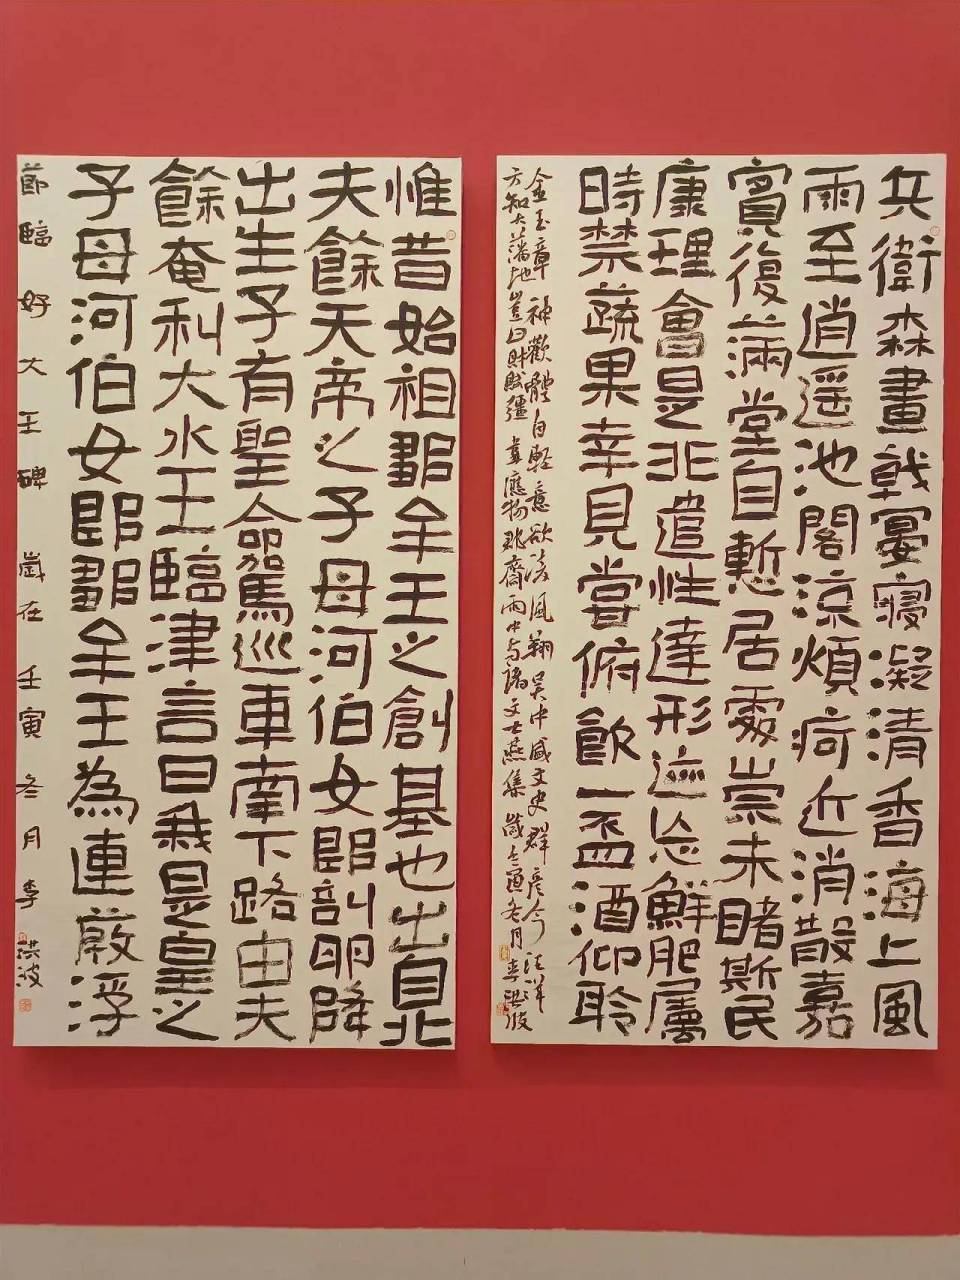 兵衛森畫戟宴寢凝清香海上風
雨至逍遥池閣涼煩疴近消散嘉
賓復滿堂自慙居處崇未睹斯民
康理會是非遣性達形迹忘鮮肥屬
時禁蔬果幸見嘗俯飲一盃酒仰聆
金玉章 神歡體自輕意欲凌風翔 吴中盛文史群彦今汪洋
方知大藩地豈曰財賦彊 韋應物郡齋雨中與諸文士燕集 歲壬寅冬月 李洪波
惟昔始祖鄒牟王之創基也出自北
夫餘天帝之子母河伯女郎剖卵降
出生子有聖命駕巡車南下路由夫
餘奄利大水王臨津言曰我是皇之
子母河伯女郎鄒牟王為連葭浮
節臨好大王碑 歲在壬寅冬月 李洪波